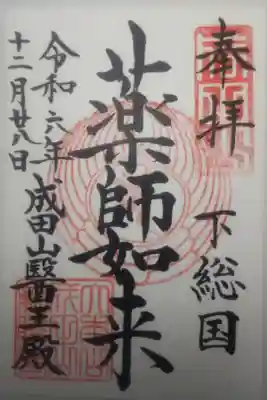 奉拝
下総国
薬師如来
成田山醫王殿
令和六年
十二月廿八日